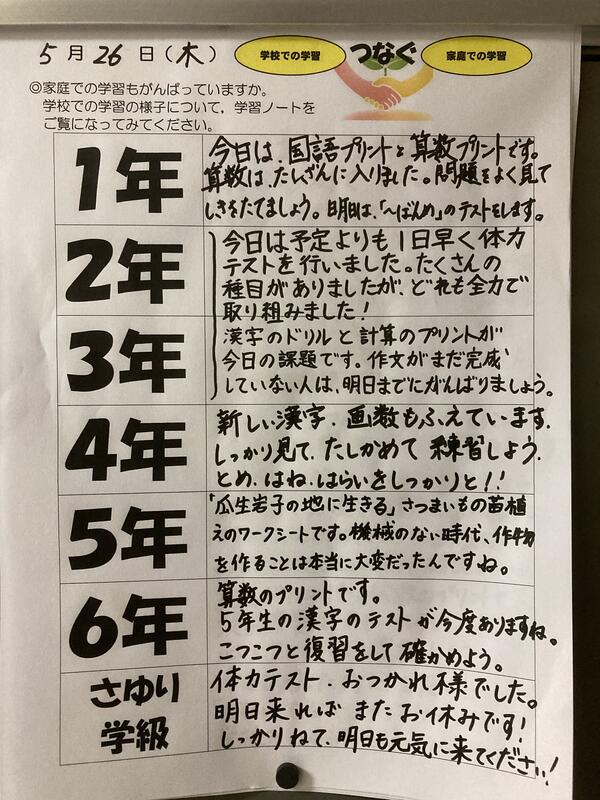 5月26日(木)
学校での学習 つなぐ 家庭での学習
◎家庭での学習もがんばっていますか。
学校での学習の様子について，学習ノートを
ご覧になってみてください。
1年
今日は、国語プリントと算数プリントです。
算数は、たしざんに入りました。問題をよく見て
しきをたてましょう。明日は、「～ばんめ」のテストをします。
2年
今日は予定よりも1日早く体力
テストを行いました。たくさんの
種目がありましたが、どれも全力で
取り組みました！
3年
漢字のドリルと計算のプリントが
今日の課題です。作文がまだ完成
していない人は、明日までにがんばりましょう。
4年
新しい漢字、画数もふえています。
しっかり見て、たしかめて練習しよう。
とめ、はね、はらいをしっかりと！！
5年
「瓜生岩子の地に生きる」さつまいもの苗植
えのワークシートです。機械のない時代、作物
を作ることは本当に大変だったんですね。
6年
算数のプリントです。
5年生の漢字のテストが今度ありますね。
こつこつと復習をして確かめよう。
さゆり
学級
体力テスト、おつかれ様でした。
明日来ればまたお休みです！
しっかりねて、明日も元気に来てください！